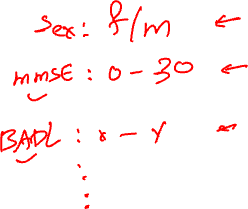 Sex: f/m ←
MMSE: 0-30 ←
BADL: x-y ←
:
: